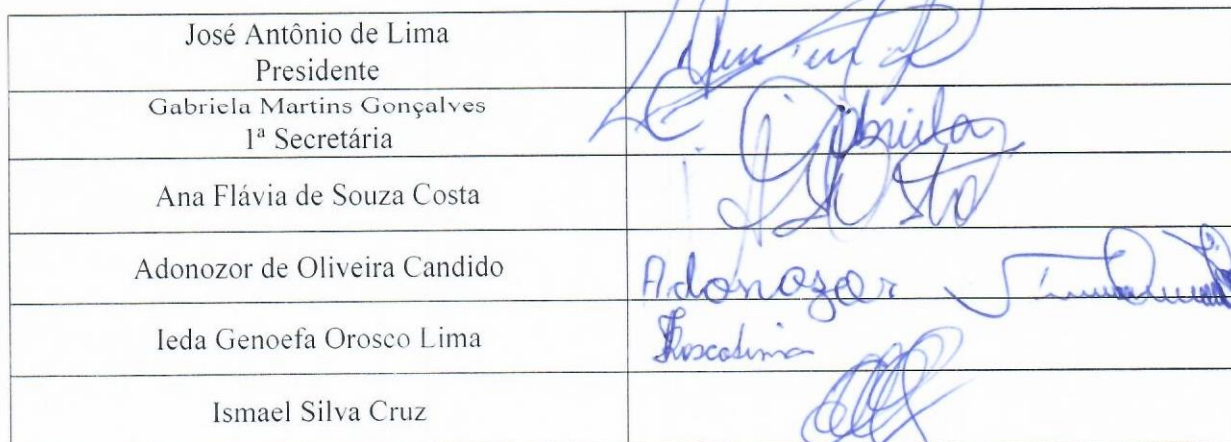 José Antônio de Lima
Presidente
Gabriela Martins Gonçalves
1ª Secretária
Gabriela
Ana Flávia de Souza Costa
Adonozor de Oliveira Candido
Adonozor
Ieda Genoefa Orosco Lima
Ismael Silva Cruz